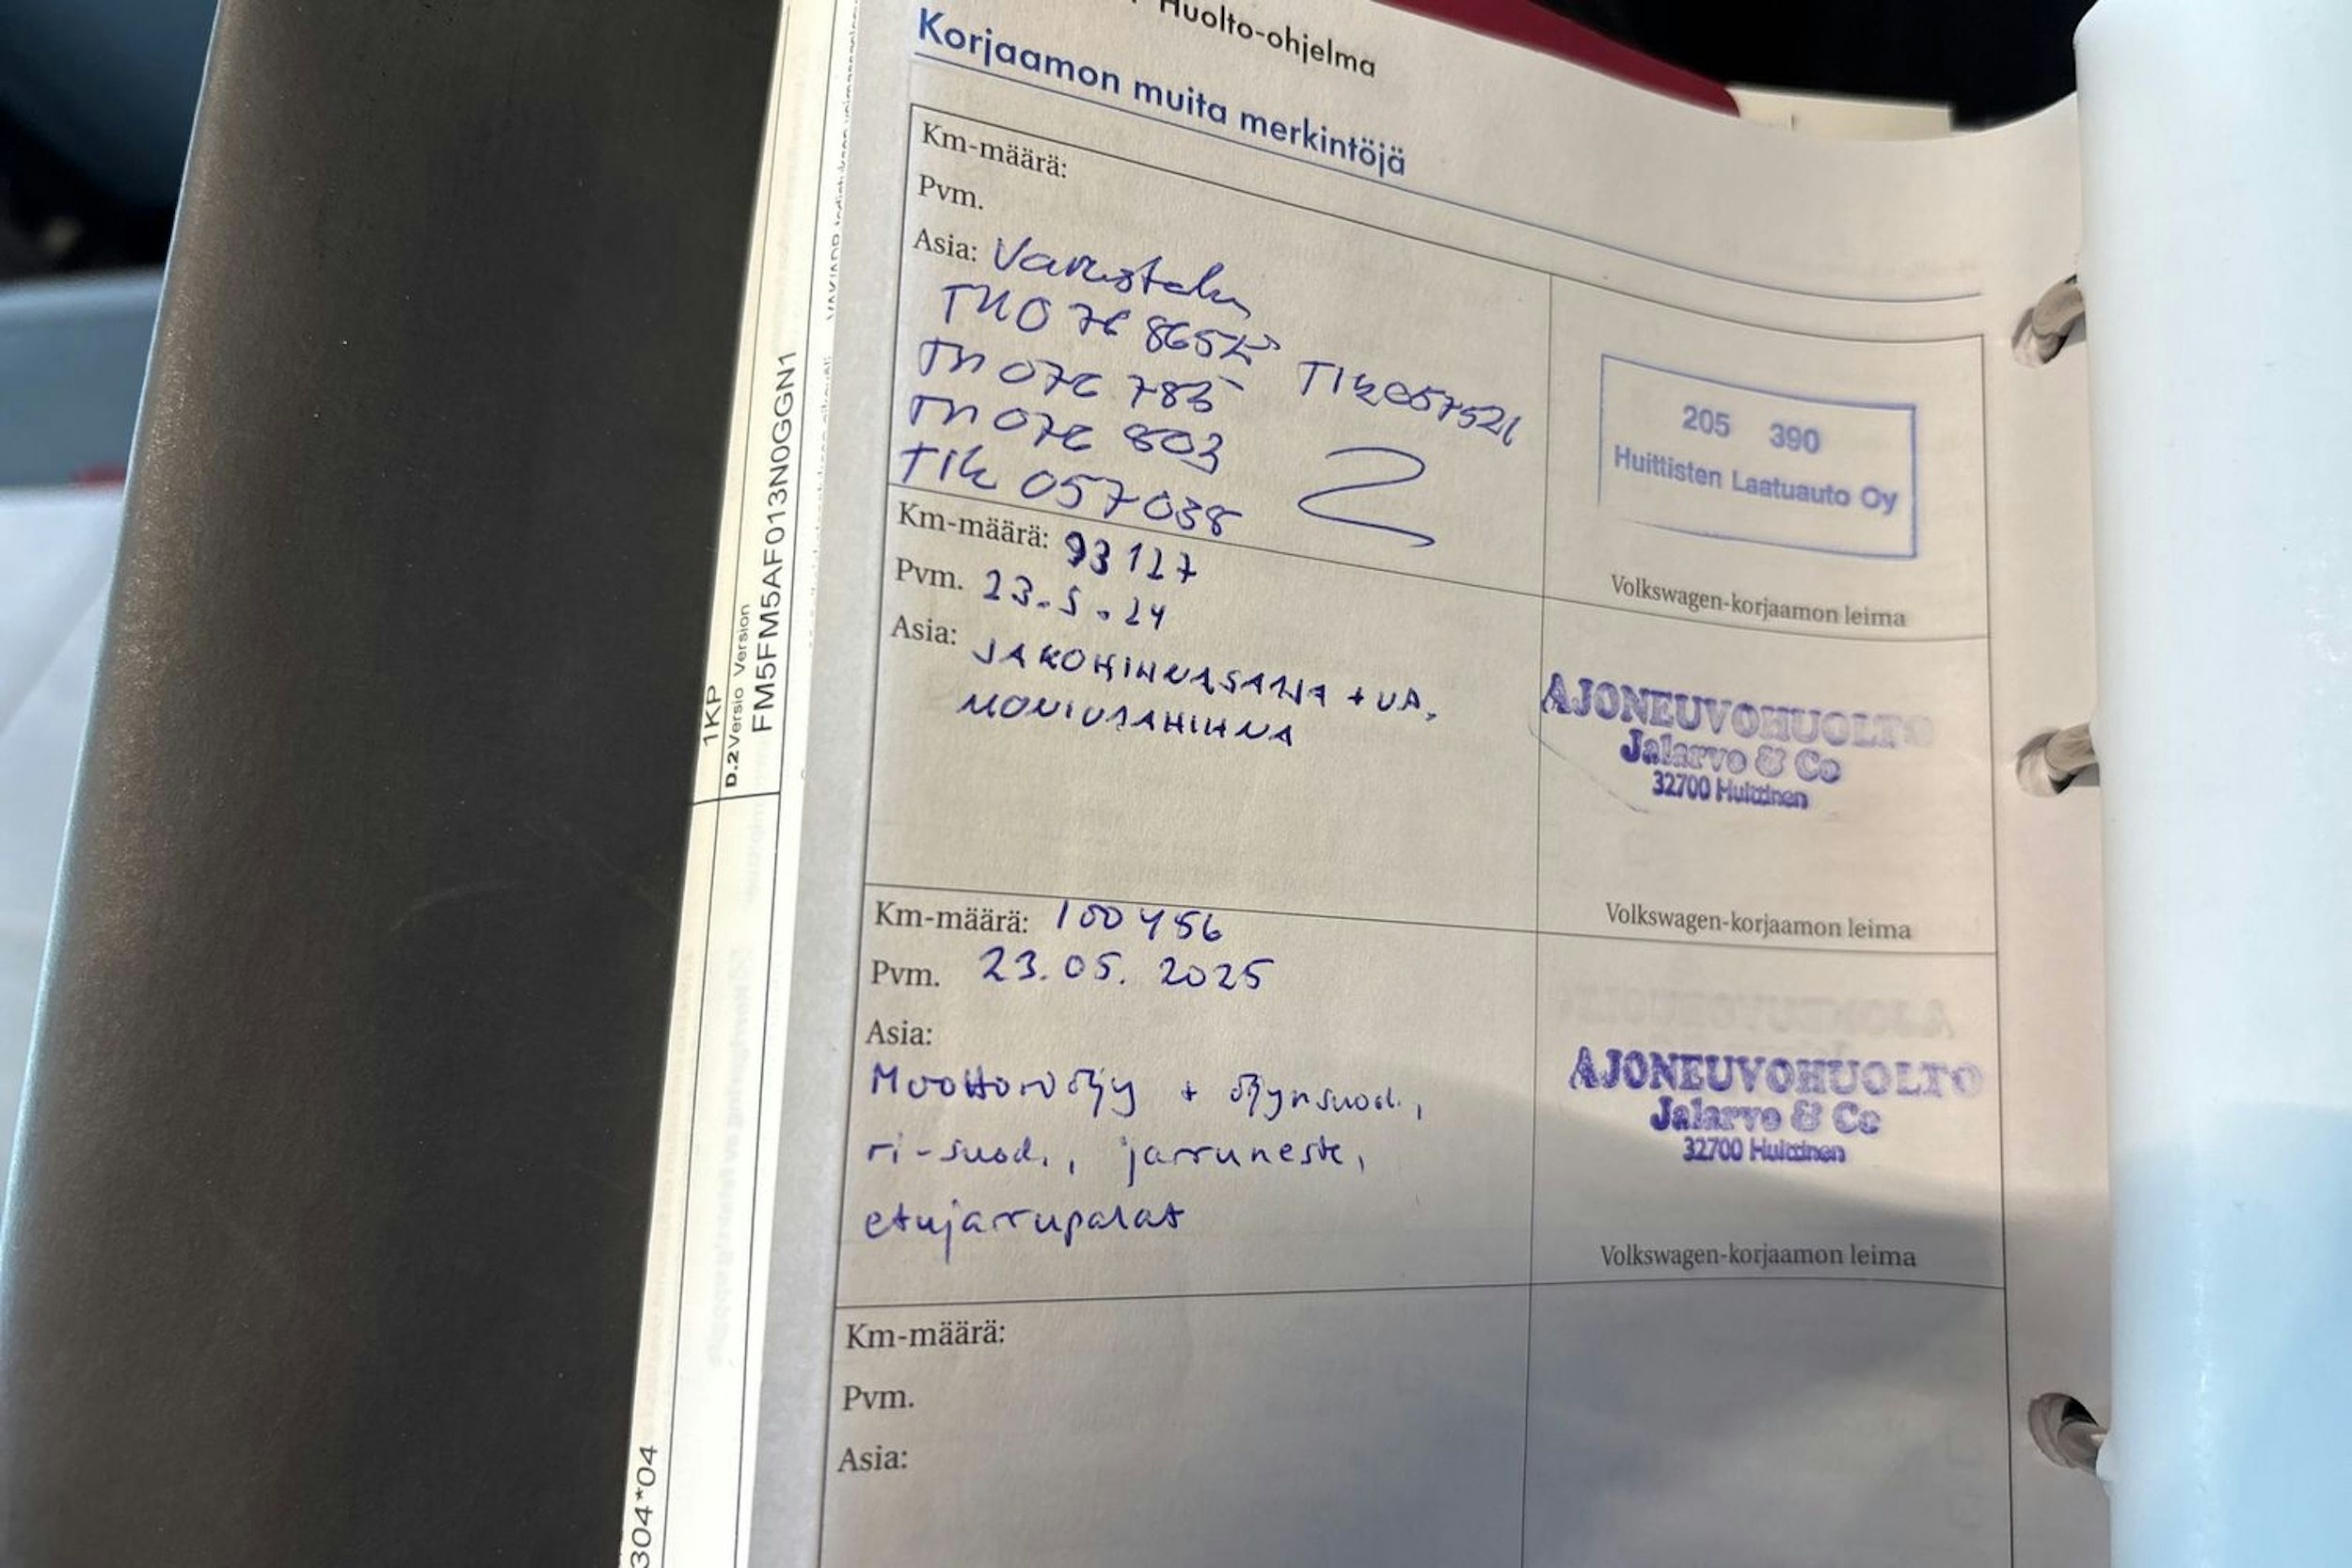 Huolto-ohjelma
Korjaamon muita merkintöjä
Km-määrä:
Pvm.
Asia: Varustelu
TIK057521
TN 076 785
TN 076 803
TIK 057038
205 390
Huittisten Laatuauto Oy
Volkswagen-korjaamon leima
Km-määrä: 93127
Pvm. 23.5.24
Asia: JAKOHIHNASARJA + VP,
MONIURAHIHNA
AJONEUVOHUOLTO
Jalarvo & Co
32700 Huittinen
Volkswagen-korjaamon leima
Km-määrä: 100456
Pvm. 23.05.2025
Asia:
Moottoriöljy + öljynsuod.,
ri-suod., jarruneste,
etujarrupalat
AJONEUVOHUOLTO
Jalarvo & Co
32700 Huittinen
Volkswagen-korjaamon leima
Km-määrä:
Pvm.
Asia:
1KP
D.2 Versio Version
FM5FM5AF013N0GGN1
304*04